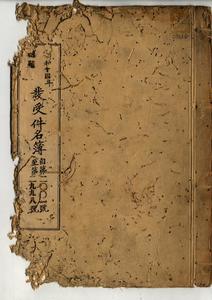 和十四年
發受件名簿
自第一〇〇一號
至第一九九八號